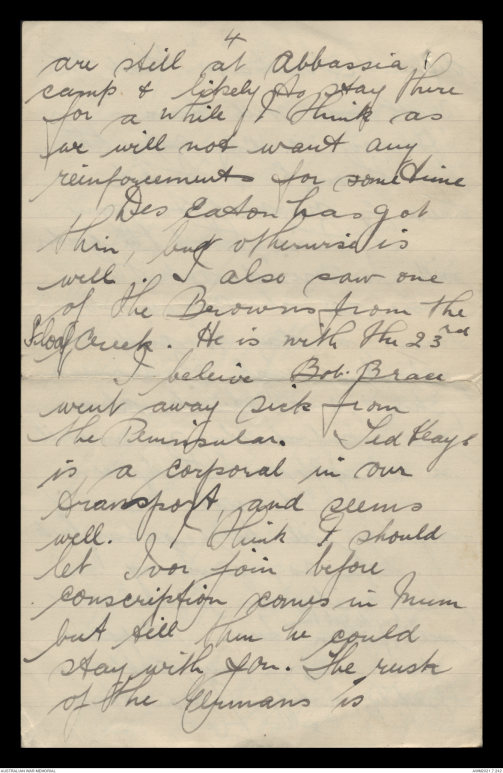 4
are still at Abbassia
camp & likely to stay there
for a while I think as
we will not want any
reinforcements for sometime
Des Eaton has got
thin, but otherwise is
well. I also saw one
of the Browns from the
Creek. He is with the 23rd
I beleive Bob. Brace
went away sick from
the Peninsular. Ted Keays
is a corporal in our
transport, and seems
well. I think I should
let Ivor join before
conscription comes in Mum
but till then he could
stay with you. The rush
of the Germans is
AUSTRALIAN WAR MEMORIAL